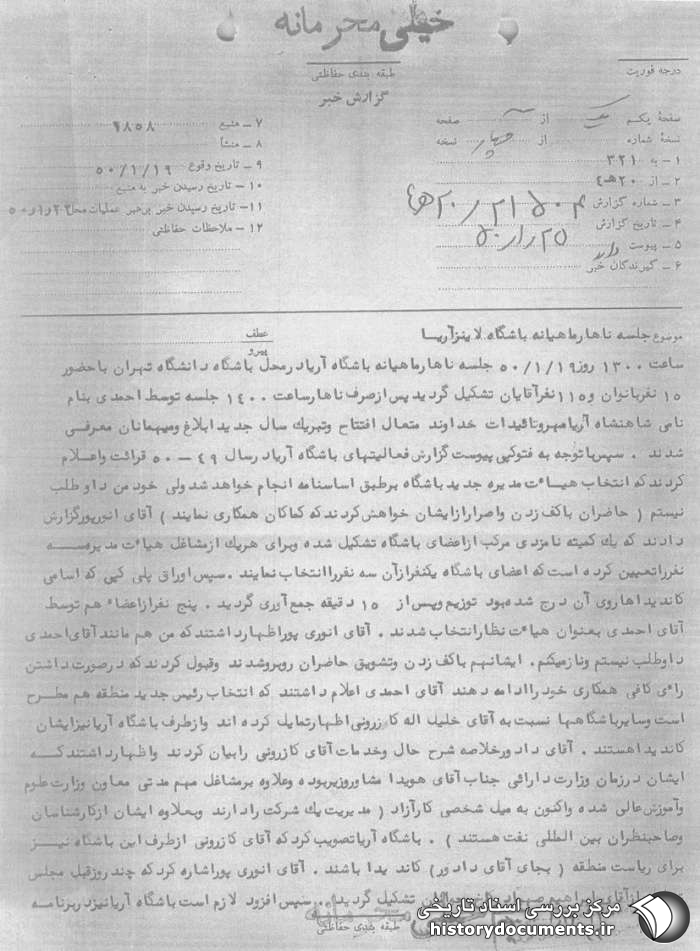 خیلی محرمانه
طبقه بندی حفاظتی
درجه فوریت
گزارش خبر
صفحه یکم از صفحه
نسخه شماره از چهار نسخه
۱ – به ۳۲۱
۲ – از ۲۰هـ٤
۳ – شماره گزارش
۴ – تاریخ گزارش
۵ – پیوست دارد
۶ – گیرندگان خبر
۷ – منبع ۹۸۵۸
۸ – منشأ
۹ – تاریخ وقوع ۵۰/۱/۱۹
۱۰ – تاریخ رسیدن خبر به منبع
۱۱ – تاریخ رسیدن خبر برهبر عملیات محل
۱۲ – ملاحظات حفاظتی
موضوع جلسه ناهارماهیانه باشگاه لاینزآریا
عطف
پیرو
ساعت ۱۳۰۰ روز ۵۰/۱/۱۹ جلسه ناهارماهیانه باشگاه آریادرمحل باشگاه دانشگاه تهران باحضور
۱۵ نفربانوان و۱۱۵نفرآقایان تشکیل گردیدپس ازصرف ناهارساعت ۱۴۰۰ جلسه توسط احمدی بنام
نامی شاهنشاه آریامهروتائیدات خداوند متعال افتتاح وتبریک سال جدیدابلاغ ومیهمانان معرفی
شدند . سپس باتوجه به فتوکپی پیوست گزارش فعالیتهای باشگاه آریادرسال ۴۹ – ۵۰ قرائت واعلام
کردندکه انتخاب هیاءت مدیره جدیدباشگاه برطبق اساسنامه انجام خواهدشدولی خودمن داوطلب
نیستم ( حاضران باکف زدن واصرارازایشان خواهش کردندکه کماکان همکاری نمایند ) آقای انورپورگزارش
دادند که یک کمیته نامزدی مرکب ازاعضای باشگاه تشکیل شده وبرای هریک ازمشاغل هیاءت مدیره سه
نفرراتعیین کرده است که اعضای باشگاه یکنفرازآن سه نفرراانتخاب نمایند . سپس اوراق پلی کپی که اسامی
کاندیداهاروی آن درج شده بود توزیع وپس از ۱۵ دقیقه جمع آوری گردید . پنج نفرازاعضاء هم توسط
آقای احمدی بعنوان هیاءت نظارانتخاب شدند . آقای انوری پوراظهارداشتندکه من هم مانندآقای احمدی
داوطلب نیستم ونازمیکنم . ایشانهم باکف زدن وتشویق حاضران روبروشدند وقبول کردندکه درصورت داشتن
راءی کافی همکاری خودراادامه دهند آقای احمدی اعلام داشتند که انتخاب رئیس جدید منطقه هم مطرح
است وسایرباشگاهها نسبت به آقای خلیل اله کازرونی اظهارتمایل کرده اند وازطرف باشگاه آریانیزایشان
کاندیداهستند . آقای دادورخلاصه شرح حال وخدمات آقای کازرونی رابیان کردند واظهارداشتندکه
ایشان درزمان وزارت دارائی جناب آقای هویدا مشاوروزیربوده وعلاوه برمشاغل مهم مدتی معاون وزارت علوم
وآموزش عالی شده واکنون به میل شخصی کارآزاد ( مدیریت یک شرکت رادارند وبعلاوه ایشان ازکارشناسان
وصاحبنظران بین المللی نفت هستند ) . باشگاه آریاتصویب کردکه آقای کازرونی ازطرف این باشگاه نیز
برای ریاست منطقه ( بجای آقای دادور) کاندیدا باشند . آقای انوری پوراشاره کردکه چندروزقبل مجلس
تشکیل گردید . . سپس افزود لازم است باشگاه آریانیزدربرنامه
طبقه بندی حفاظتی
مرکز بررسی اسناد تاریخی
historydocuments.ir